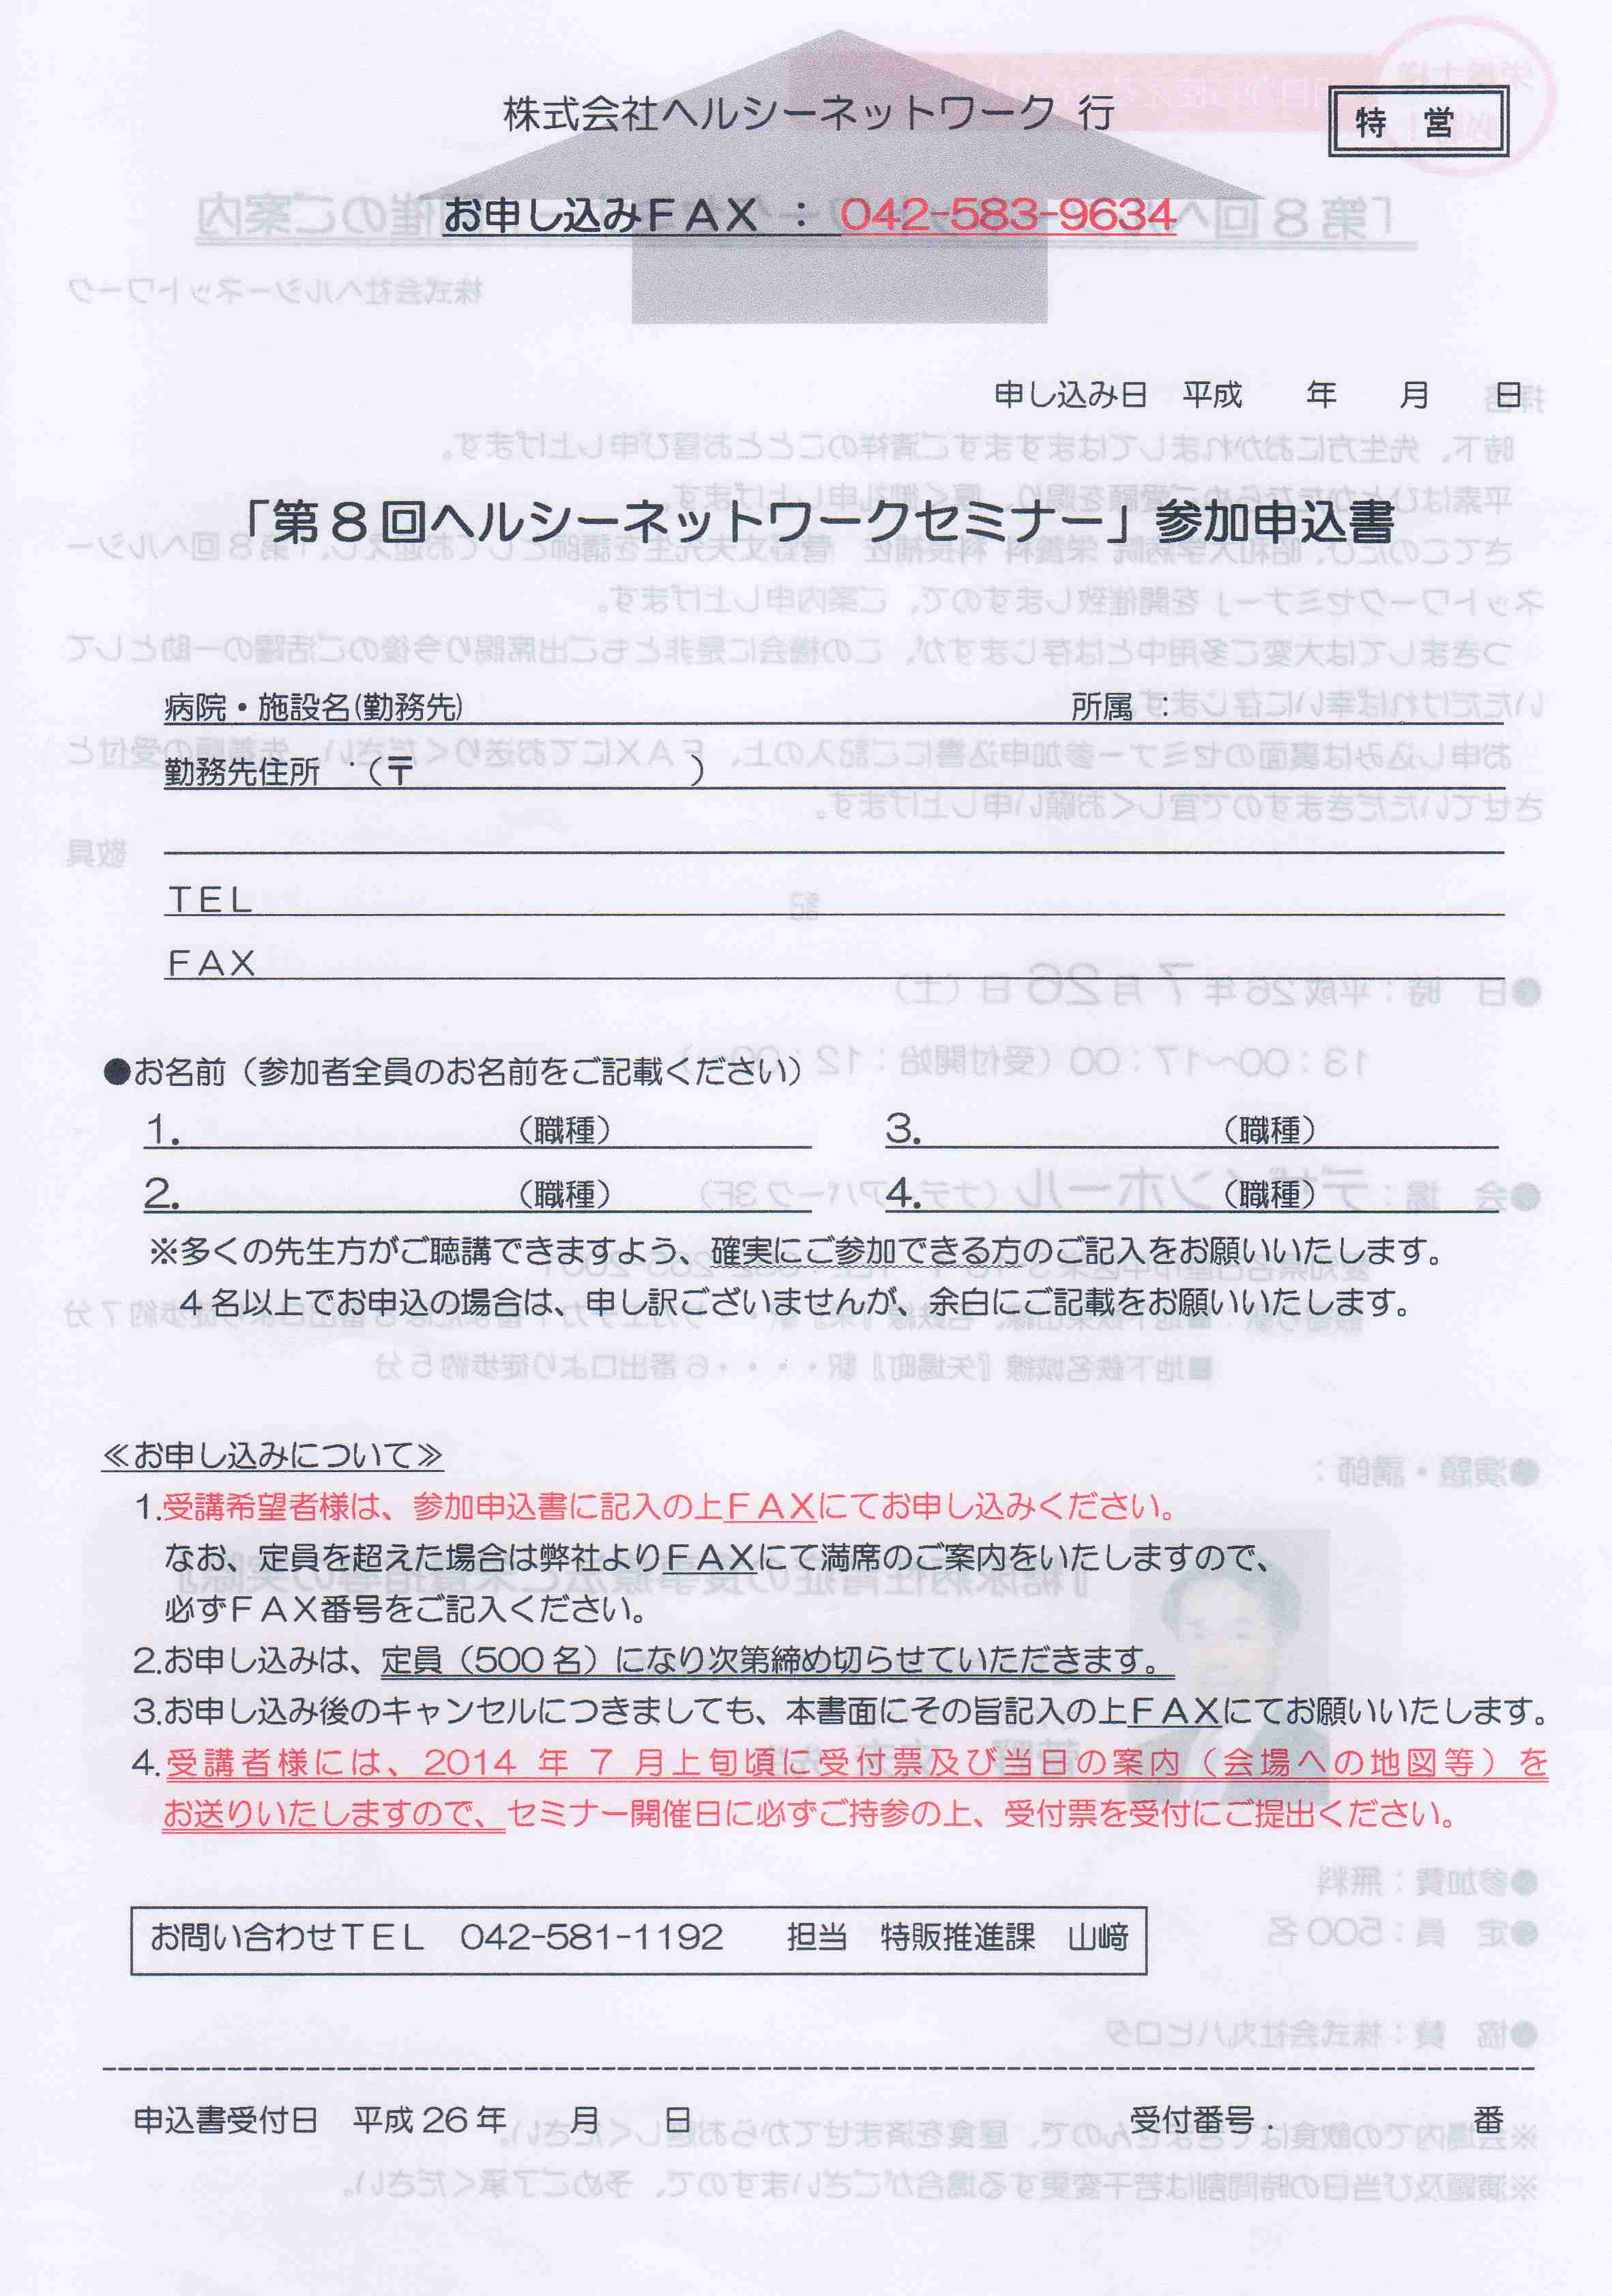 株式会社ヘルシーネットワーク 行
特 営
お申し込みFAX : 042-583-9634
申し込み日 平成 年 月 日
「第8回ヘルシーネットワークセミナー」参加申込書
病院・施設名(勤務先) 所属 :
勤務先住所 (〒 )
TEL
FAX
●お名前(参加者全員のお名前をご記載ください)
1. (職種) 3. (職種)
2. (職種) 4. (職種)
※多くの先生方がご聴講できますよう、確実にご参加できる方のご記入をお願いいたします。
4名以上でお申込の場合は、申し訳ございませんが、余白にご記載をお願いいたします。
≪お申し込みについて≫
1.受講希望者様は、参加申込書に記入の上FAXにてお申し込みください。
なお、定員を超えた場合は弊社よりFAXにて満席のご案内をいたしますので、
必ずFAX番号をご記入ください。
2.お申し込みは、定員(500名)になり次第締め切らせていただきます。
3.お申し込み後のキャンセルにつきましても、本書面にその旨記入の上FAXにてお願いいたします。
4.受講者様には、2014年7月上旬頃に受付票及び当日の案内(会場への地図等)を
お送りいたしますので、セミナー開催日に必ずご持参の上、受付票を受付にご提出ください。
お問い合わせTEL 042-581-1192 担当 特販推進課 山﨑
申込書受付日 平成26年 月 日 受付番号. 番